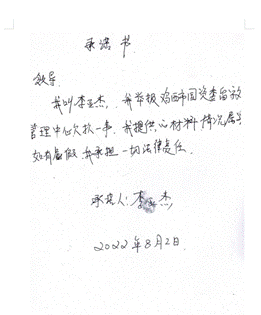 承诺书
领导：
我叫李亚杰，我举报鸡西市国资委留守
管理中心欠款一事，我提供的材料情况属实
如有虚假我承担一切法律责任。
承诺人：李亚杰
2022年8月2日